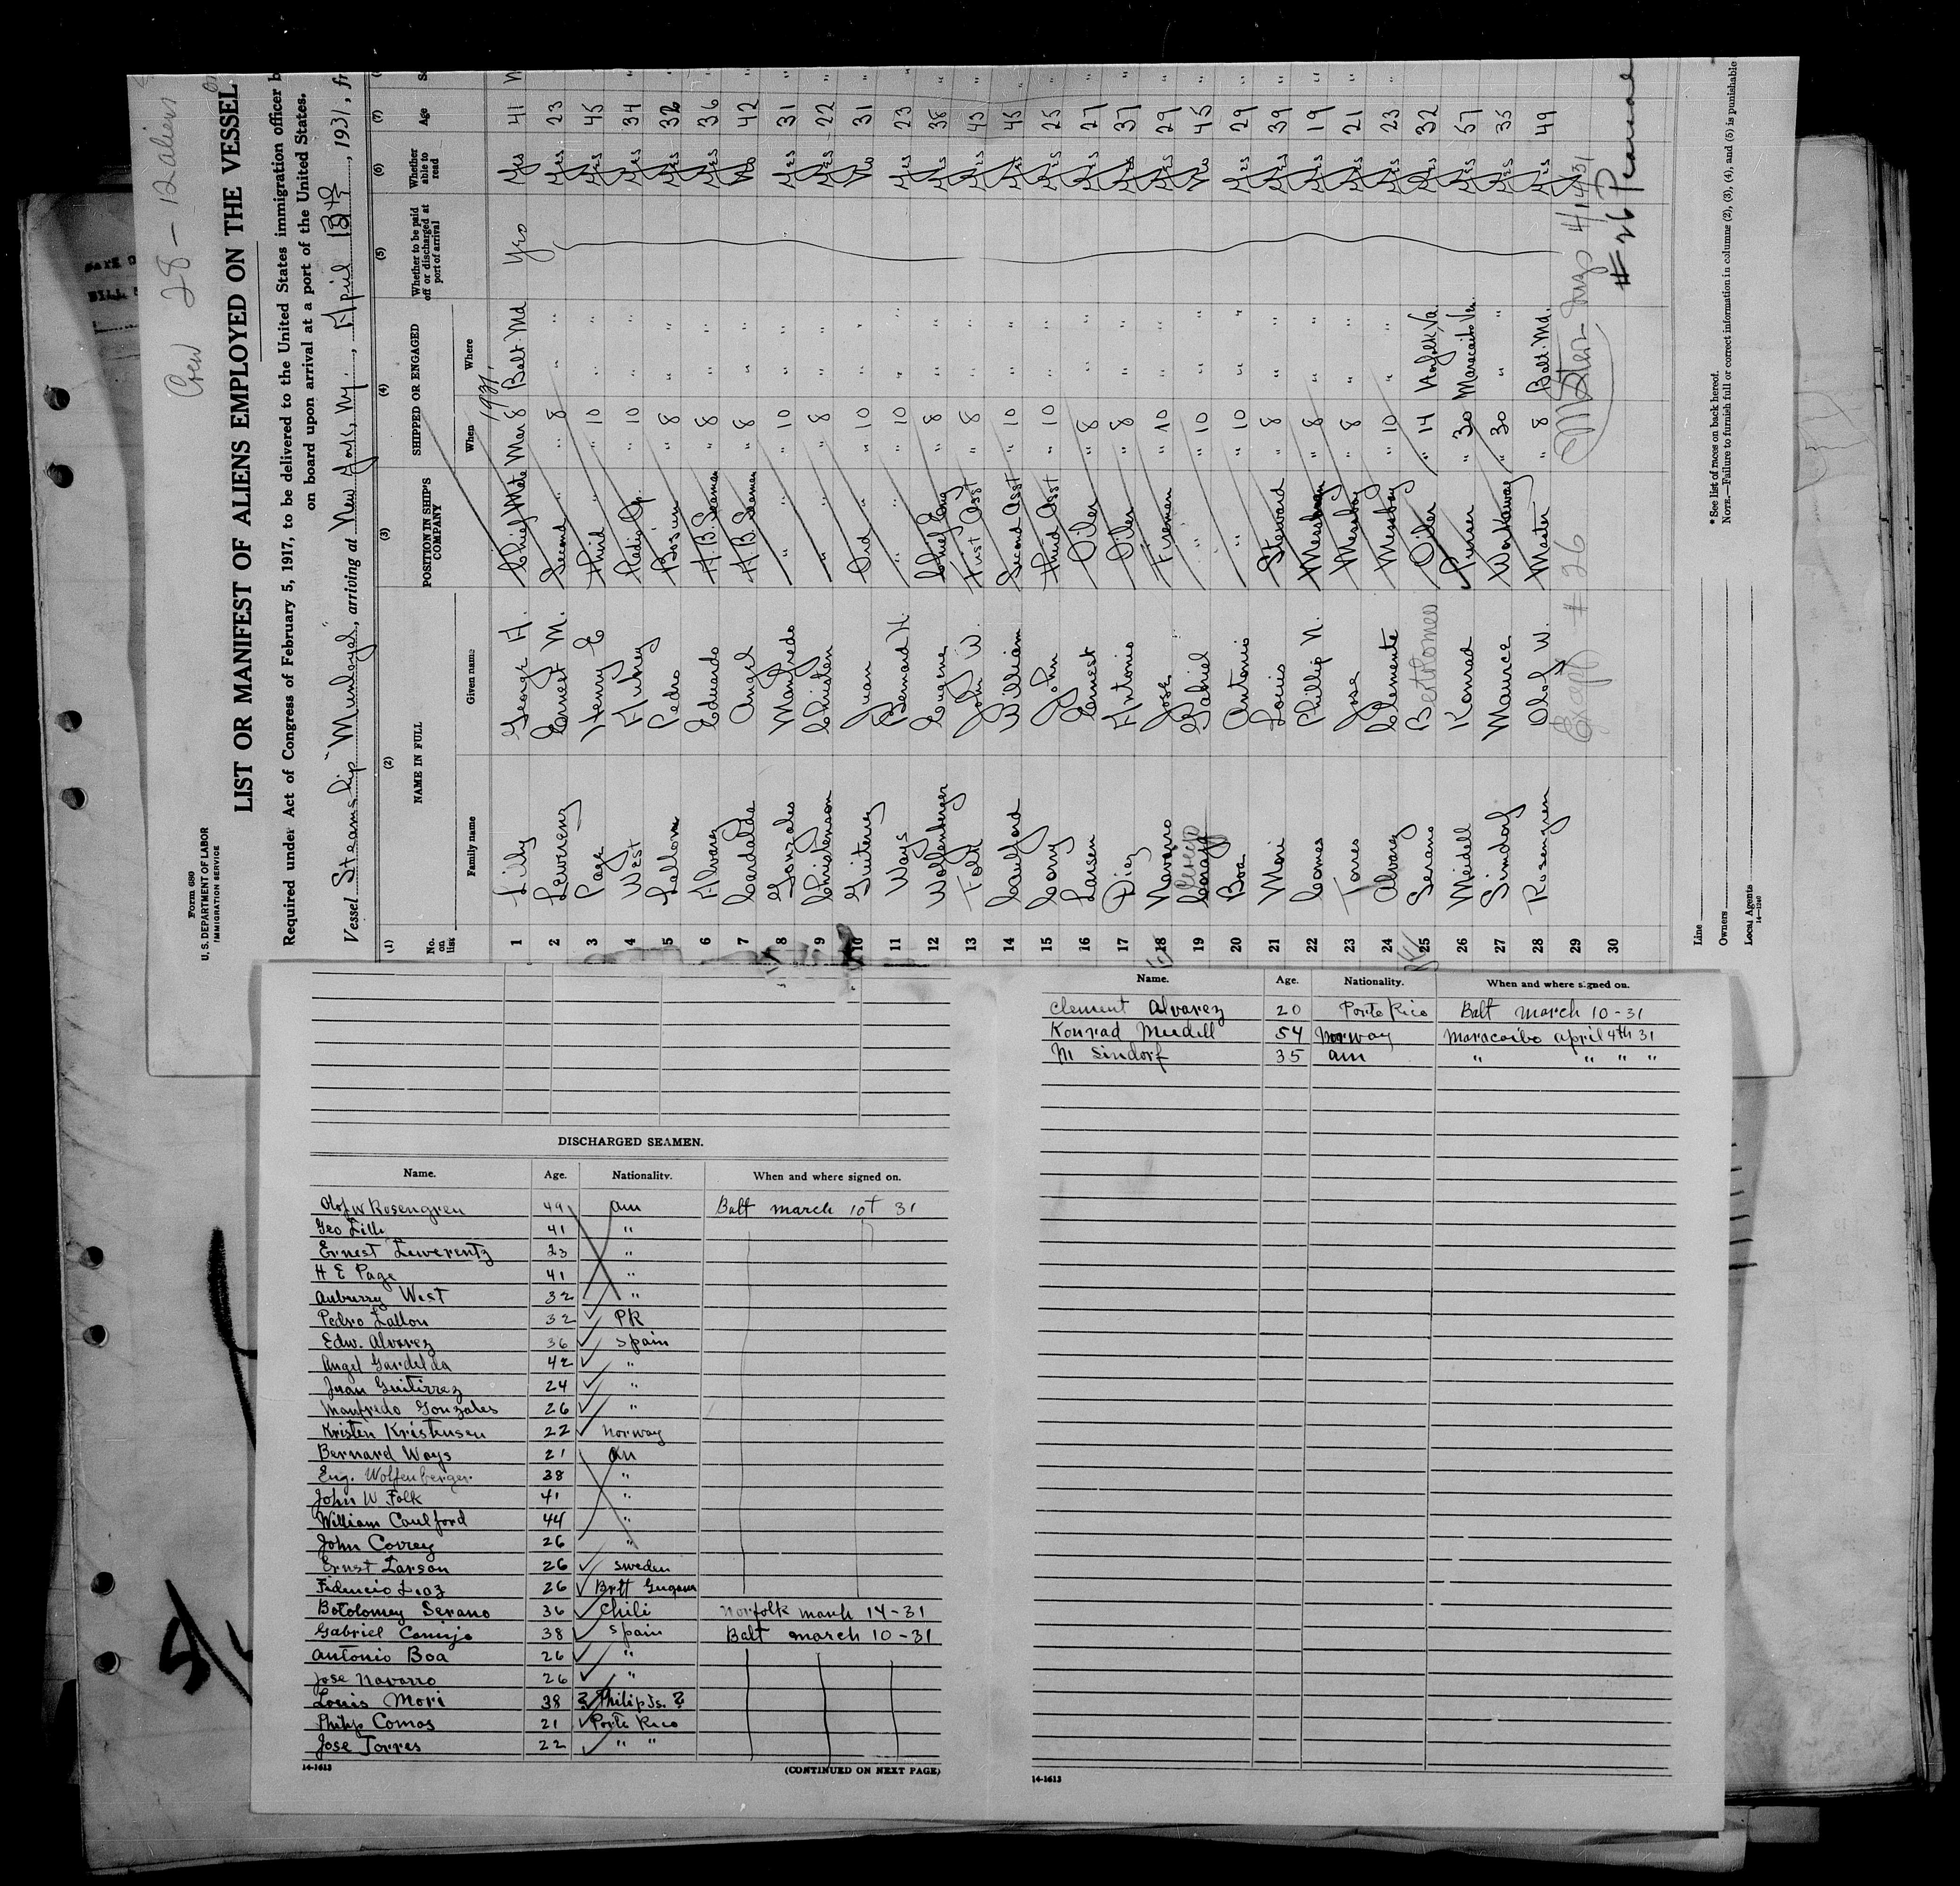 Crew 28 - 12 aliens
Form 680
U. S. DEPARTMENT OF LABOR
IMMIGRATION SERVICE
LIST OR MANIFEST OF ALIENS EMPLOYED ON THE VESSEL
Required under Act of Congress of February 5, 1917, to be delivered to the United States immigration officer b
on board upon arrival at a port of the United States.
Vessel Steamship "Munloyal", arriving at New York, Ny., April, 1931, fr
(1) (2) (3) (4) (5) (6) (7)
No. on list NAME IN FULL POSITION IN SHIP'S COMPANY SHIPPED OR ENGAGED Whether to be paid off or discharged at port of arrival Whether able to read Age
Family name Given name When Where
1931.
1 Lilly George H. Chief Mate Mar 8 Balt. Md Yes Yes 41
2 Lewrenz Ernest M. Second " " 8 " " Yes 23
3 Page Henry E Third " " 10 " " Yes 45
4 West Aubrey Radio Op. " 10 " " Yes 34
5 Lallom Pedro Bosun " 8 " " Yes 32
6 Alvarez Eduardo A.B. Seaman " 8 " " Yes 36
7 Cardalda Angel A.B. Seaman " 8 " " No 42
8 Gonzales Manfredo " " " 10 " " Yes 31
9 Christenson Christen " " 8 " " Yes 22
10 Guiterrez Juan Ord " " 10 " " No 31
11 Ways Bernard H. " " " 10 " " Yes 23
12 Wolfenberger Eugene Chief Eng " 8 " " Yes 38
13 Folk John W. First Asst " 8 " " Yes 43
14 Caulford William Second Asst " 10 " " Yes 45
15 Corry John Third Asst " 10 " " Yes 25
16 Larsen Ernest Oiler " 8 " " Yes 27
17 Diez Antonio Oiler " 8 " " Yes 37
18 Navarro Jose Fireman " 10 " " Yes 29
19 Gabriel " " 10 " " No 45
20 Boa Antonio " " 10 " " Yes 29
21 Mori Louis Steward " 8 " " Yes 39
22 Comes Phillip N. Messman " 8 " " Yes 19
23 Torres Jose Messboy " 8 " " Yes 21
24 Alvarez Clemente Messboy " 10 " " Yes 23
25 Serano Bertholomeo Oiler " 14 Norfolk Va. Yes 32
26 Meidell Konrad Purser " 30 Maracaibo Ve. Yes 57
27 Simdorf Maurice Workaway " 30 " " Yes 35
28 Rosengren Olof W. Master " 8 Balt. Md. Yes 49
29 # 26 4/14/31
30
# 26
* See list of races on back hereof.
NOTE.—Failure to furnish full or correct information in columns (2), (3), (4), and (5) is punishable
Line
Owners
Local Agents
14—1240
DISCHARGED SEAMEN.
Name. Age. Nationality. When and where signed on.
Olof W Rosengren 49 am Balt march 10t 31
Geo Lilli 41 "
Ernest Lewerentz 23 "
H E Page 41 "
Auburry West 32 "
Pedro Lallon 32 PR
Edw. Alvarez 36 Spain
Angel Gardelda 42 "
Juan Guitirrez 24 "
Manfredo Gonzales 26 "
Kristen Kristensen 22 Norway
Bernard Ways 21 am
Eug. Wolfenberger 38 "
John W Folk 41 "
William Coulford 44 "
John Correy 26 "
Ernst Larson 26 Sweden
26
Botolomey Serano 36 Chili Norfolk march 14-31
Gabriel 38 Spain Balt march 10-31
Antonio Boa 26 "
Jose Navarro 26 "
Louis Mori 38 ? Philip Is. ?
Philip Comas 21 Porto Rico
Jose Torres 22 " "
14-1613
(CONTINUED ON NEXT PAGE)
Name. Age. Nationality. When and where signed on.
Clement Alvarez 20 Porto Rico Balt march 10-31
Konrad Meidell 54 Norway Maracaibo april 4th 31
M Sindorf 35 am " " " "
14-1613